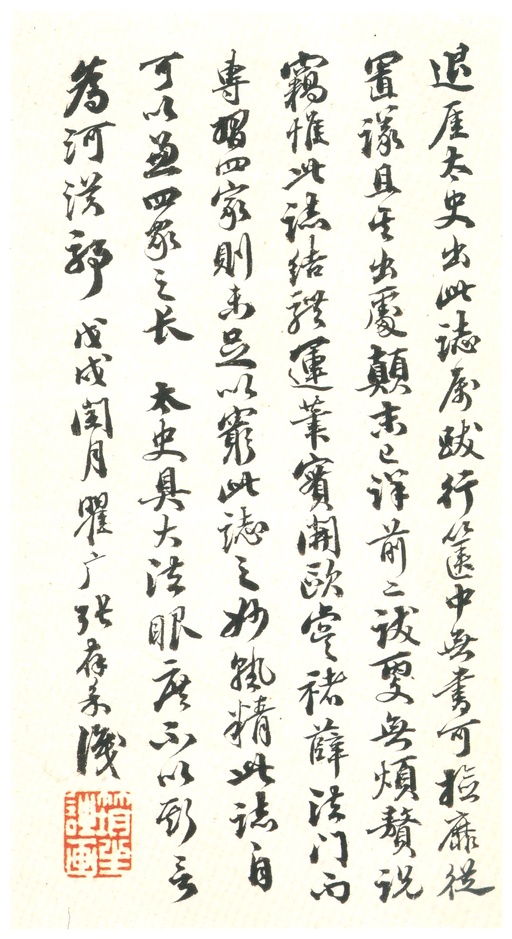 退厓太史出此誌属跋行篋中無書可檢靡從
置議且其出處顛末已詳前二跋更無煩贅說
竊惟此誌結體運筆實開歐虞褚薛法門而
專習四家則未足以窮此誌之妙孰精此誌自
可以兼四家之长 太史具大法眼庶不以斯言
為河漢 戊戌閏月瞿广張識